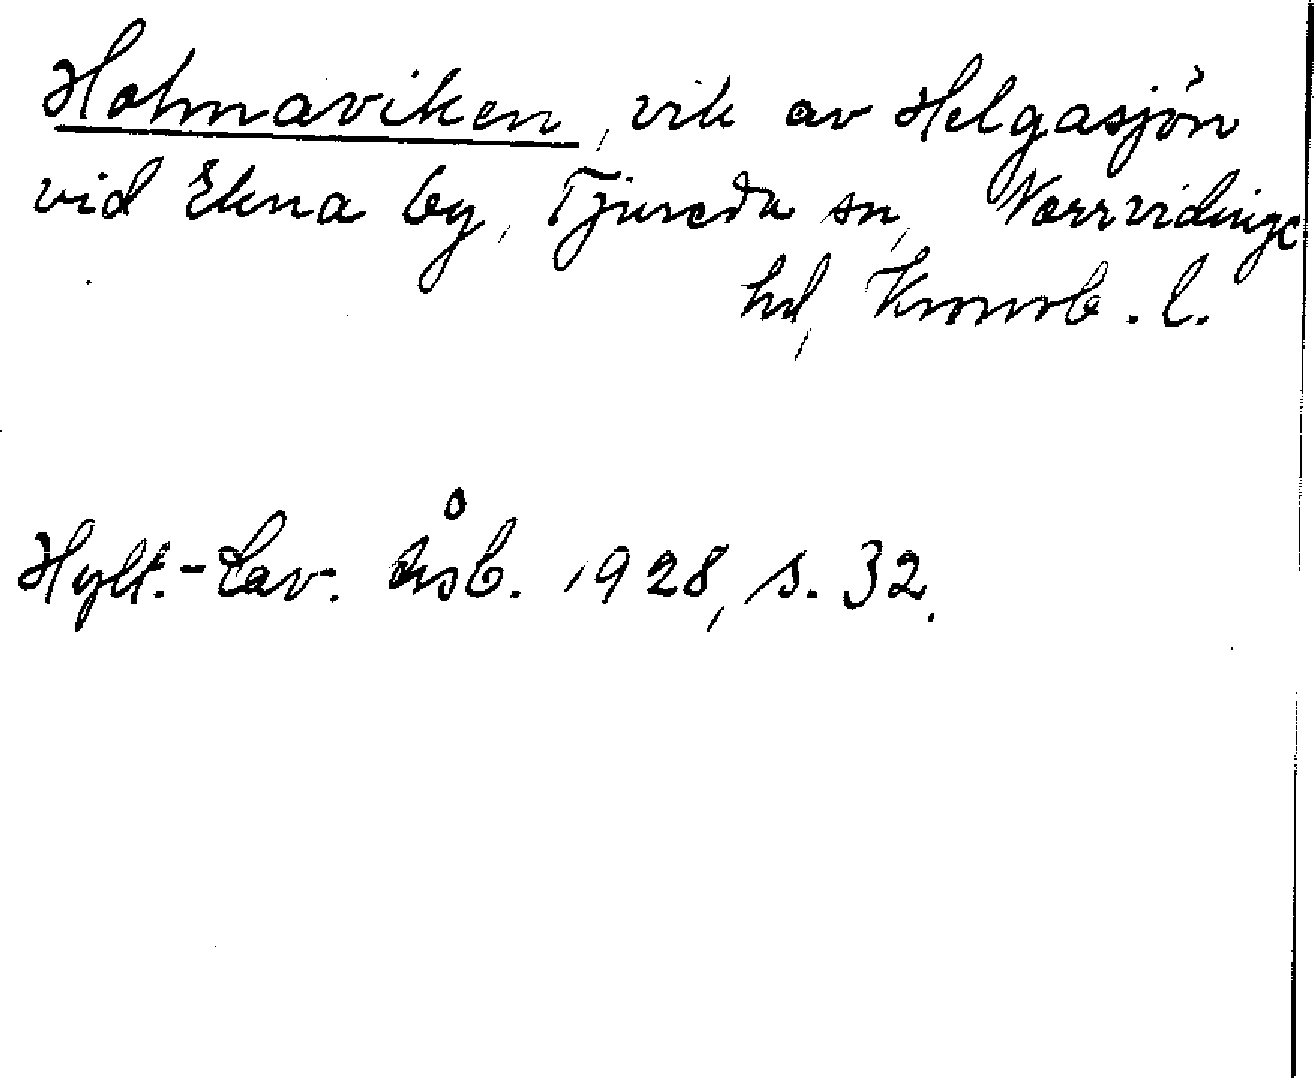 Holmaviken, vik av Helgasjön
vid Ekna by, Tjureda sn, Norrvidinge
hd, Kronob. l.
Hylt.-Cav. Årsb. 1928, s. 32.